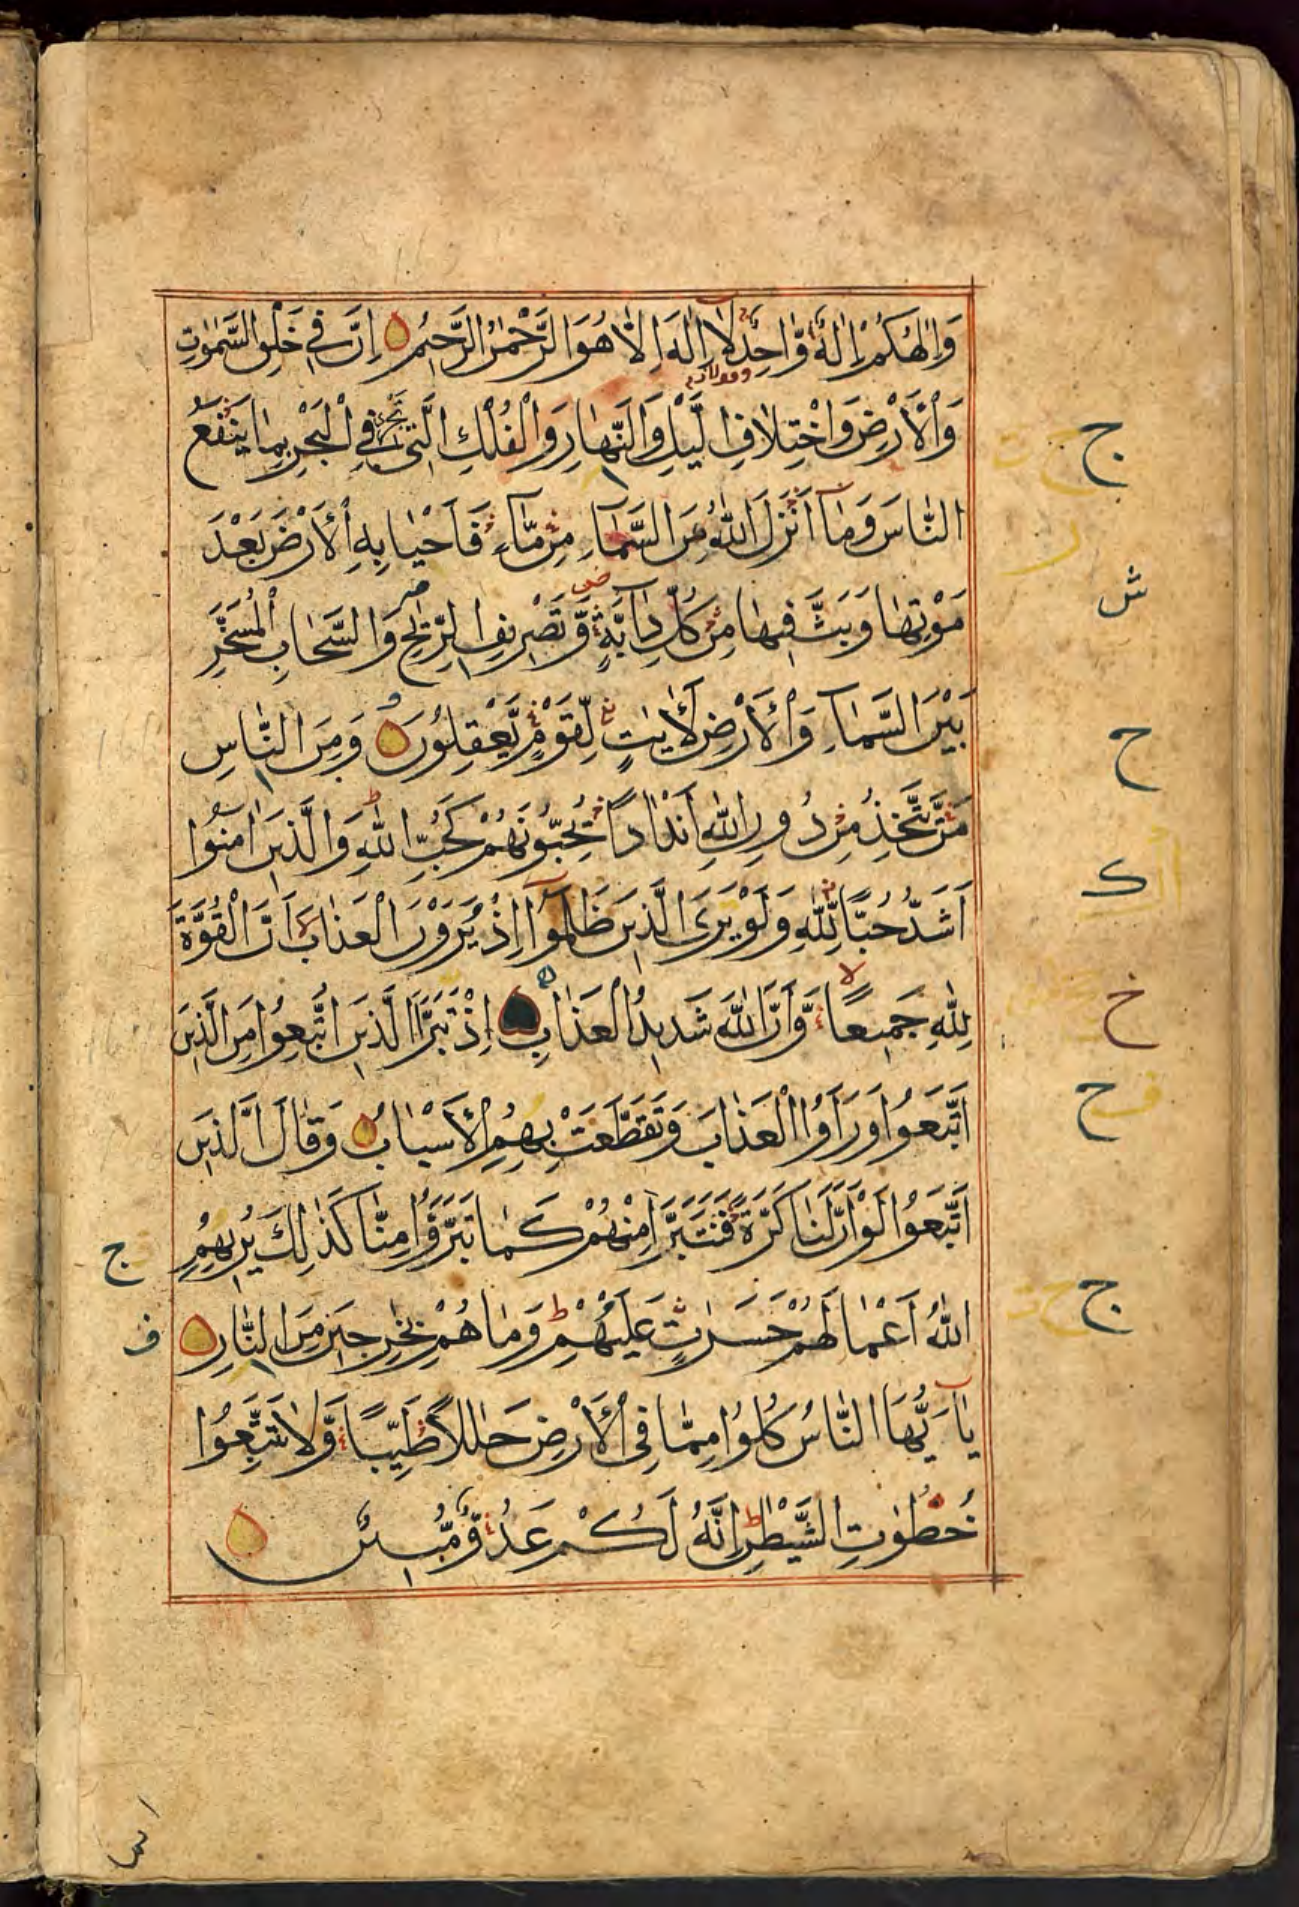 وَإِلٰهُكُمْ إِلٰهٌ وَّاحِدٌ لَا إِلٰهَ إِلَّا هُوَ الرَّحْمٰنُ الرَّحِيمُ إِنَّ فِي خَلْقِ السَّمٰوٰتِ
وَالْأَرْضِ وَاخْتِلَافِ الَّيْلِ وَالنَّهَارِ وَالْفُلْكِ الَّتِي تَجْرِي فِي الْبَحْرِ بِمَا يَنْفَعُ
النَّاسَ وَمَا أَنْزَلَ اللّٰهُ مِنَ السَّمَاءِ مِنْ مَّاءٍ فَأَحْيَا بِهِ الْأَرْضَ بَعْدَ
مَوْتِهَا وَبَثَّ فِيهَا مِنْ كُلِّ دَابَّةٍ وَّتَصْرِيفِ الرِّيٰحِ وَالسَّحَابِ الْمُسَخَّرِ
بَيْنَ السَّمَاءِ وَالْأَرْضِ لَأٰيٰتٍ لِّقَوْمٍ يَّعْقِلُونَ وَمِنَ النَّاسِ
مَنْ يَّتَّخِذُ مِنْ دُونِ اللّٰهِ أَنْدَادًا يُحِبُّونَهُمْ كَحُبِّ اللّٰهِ وَالَّذِينَ اٰمَنُوا
أَشَدُّ حُبًّا لِّلّٰهِ وَلَوْ يَرَى الَّذِينَ ظَلَمُوا إِذْ يَرَوْنَ الْعَذَابَ أَنَّ الْقُوَّةَ
لِلّٰهِ جَمِيعًا وَّأَنَّ اللّٰهَ شَدِيدُ الْعَذَابِ إِذْ تَبَرَّأَ الَّذِينَ اتُّبِعُوا مِنَ الَّذِينَ
اتَّبَعُوا وَرَأَوُا الْعَذَابَ وَتَقَطَّعَتْ بِهِمُ الْأَسْبَابُ وَقَالَ الَّذِينَ
اتَّبَعُوا لَوْ أَنَّ لَنَا كَرَّةً فَنَتَبَرَّأَ مِنْهُمْ كَمَا تَبَرَّؤُا مِنَّا كَذٰلِكَ يُرِيهِمُ
اللّٰهُ أَعْمَالَهُمْ حَسَرٰتٍ عَلَيْهِمْ وَمَا هُمْ بِخٰرِجِينَ مِنَ النَّارِ
يَا أَيُّهَا النَّاسُ كُلُوا مِمَّا فِي الْأَرْضِ حَلٰلًا طَيِّبًا وَّلَا تَتَّبِعُوا
خُطُوٰتِ الشَّيْطٰنِ إِنَّهُ لَكُمْ عَدُوٌّ مُّبِينٌ
ج
ش
ح
ك
خ
ح
ج
ج
ف